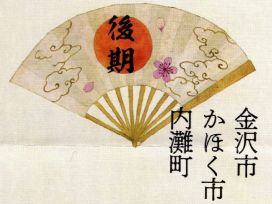 後期
金沢市
かほく市
内灘町